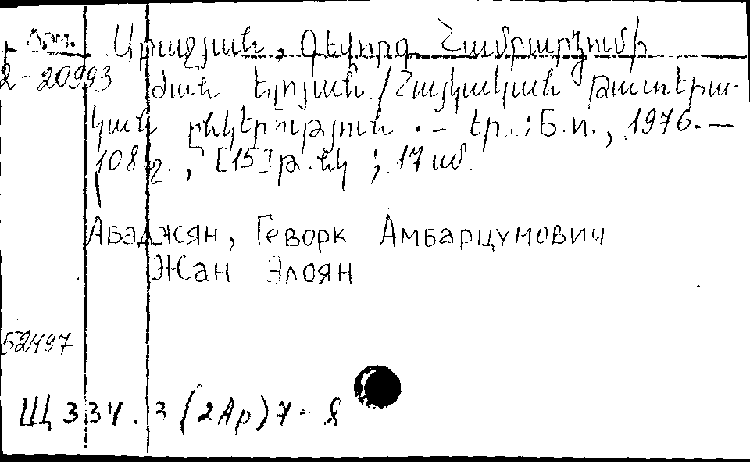 Աբաջյան, Գևորգ Համբարձումի
2-20993
Ժան Էլոյան / Հայկական թատերա-
կան ընկերություն. - Եր.: Б.и., 1976. -
108 էջ, [15] թ. նկ ; 17 սմ.
Абаджян, Геворк Амбарцумович
Жан Элоян
52497
Щ334.3(2Ар)7-8